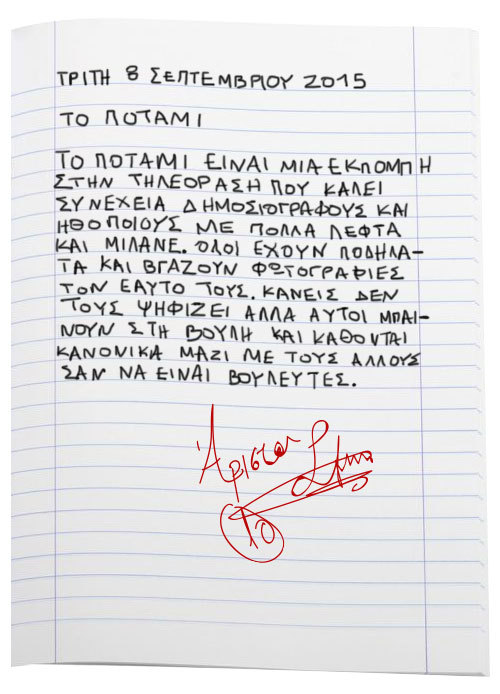 ΤΡΙΤΗ 8 ΣΕΠΤΕΜΒΡΙΟΥ 2015
ΤΟ ΠΟΤΑΜΙ
ΤΟ ΠΟΤΑΜΙ ΕΙΝΑΙ ΜΙΑ ΕΚΠΟΜΠΗ
ΣΤΗΝ ΤΗΛΕΟΡΑΣΗ ΠΟΥ ΚΑΛΕΙ
ΣΥΝΕΧΕΙΑ ΔΗΜΟΣΙΟΓΡΑΦΟΥΣ ΚΑΙ
ΗΘΟΠΟΙΟΥΣ ΜΕ ΠΟΛΛΑ ΛΕΦΤΑ
ΚΑΙ ΜΙΛΑΝΕ. ΟΛΟΙ ΕΧΟΥΝ ΠΟΔΗΛΑ-
ΤΑ ΚΑΙ ΒΓΑΖΟΥΝ ΦΩΤΟΓΡΑΦΙΕΣ
ΤΟΝ ΕΑΥΤΟ ΤΟΥΣ. ΚΑΝΕΙΣ ΔΕΝ
ΤΟΥΣ ΨΗΦΙΖΕΙ ΑΛΛΑ ΑΥΤΟΙ ΜΠΑΙ-
ΝΟΥΝ ΣΤΗ ΒΟΥΛΗ ΚΑΙ ΚΑΘΟΝΤΑΙ
ΚΑΝΟΝΙΚΑ ΜΑΖΙ ΜΕ ΤΟΥΣ ΑΛΛΟΥΣ
ΣΑΝ ΝΑ ΕΙΝΑΙ ΒΟΥΛΕΥΤΕΣ.
Άριστα
10